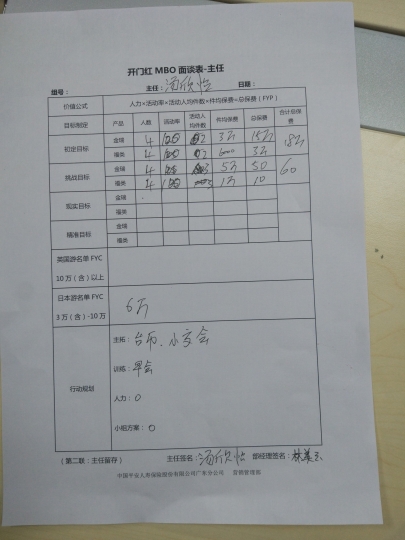 开门红 MBO 面谈表-主任
组号： 主任：汤欣怡 日期：
价值公式 人力×活动率×活动人均件数×件均保费=总保费（FYP）
目标制定 产品 人数 活动率 活动人均件数 件均保费 总保费 合计总保费
初定目标 金瑞 4 100 2 3万 15万 18万
福类 4 100 2 6000 3万
挑战目标 金瑞 4 100 5万 50 60
福类 4 100 1万 10
现实目标 金瑞
福类
精准目标 金瑞
福类
英国游名单 FYC
10万（含）以上
日本游名单 FYC 6万
3万（含）-10万
行动规划
主拓：台历、小交会
训练：早会
人力：0
小组方案：0
（第二联：主任留存） 主任签名：汤欣怡 部经理签名：
中国平安人寿保险股份有限公司广东分公司 营销管理部